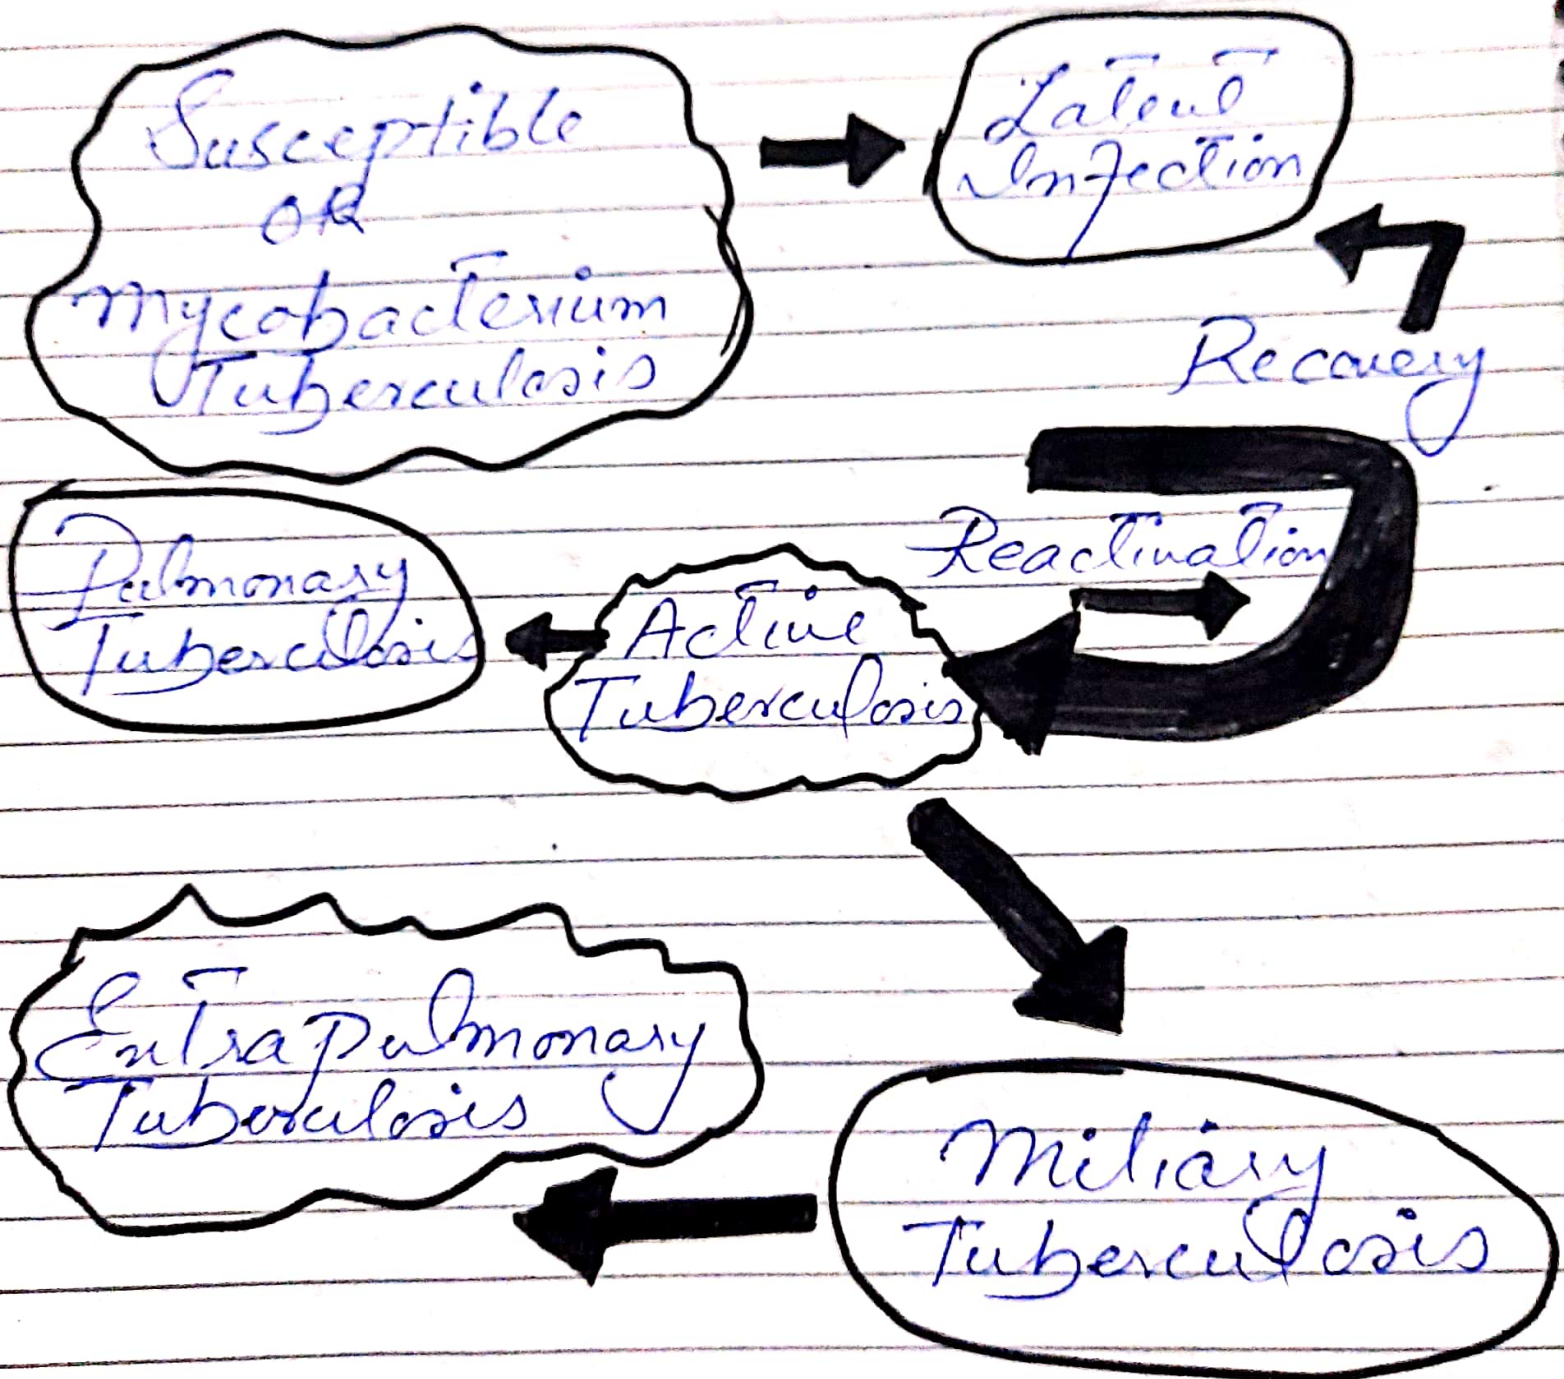 Susceptible
OR
Mycobacterium
Tuberculosis
Latent
Infection
Recovery
Reactivation
Pulmonary
Tuberculosis
Active
Tuberculosis
Extrapulmonary
Tuberculosis
Miliary
Tuberculosis